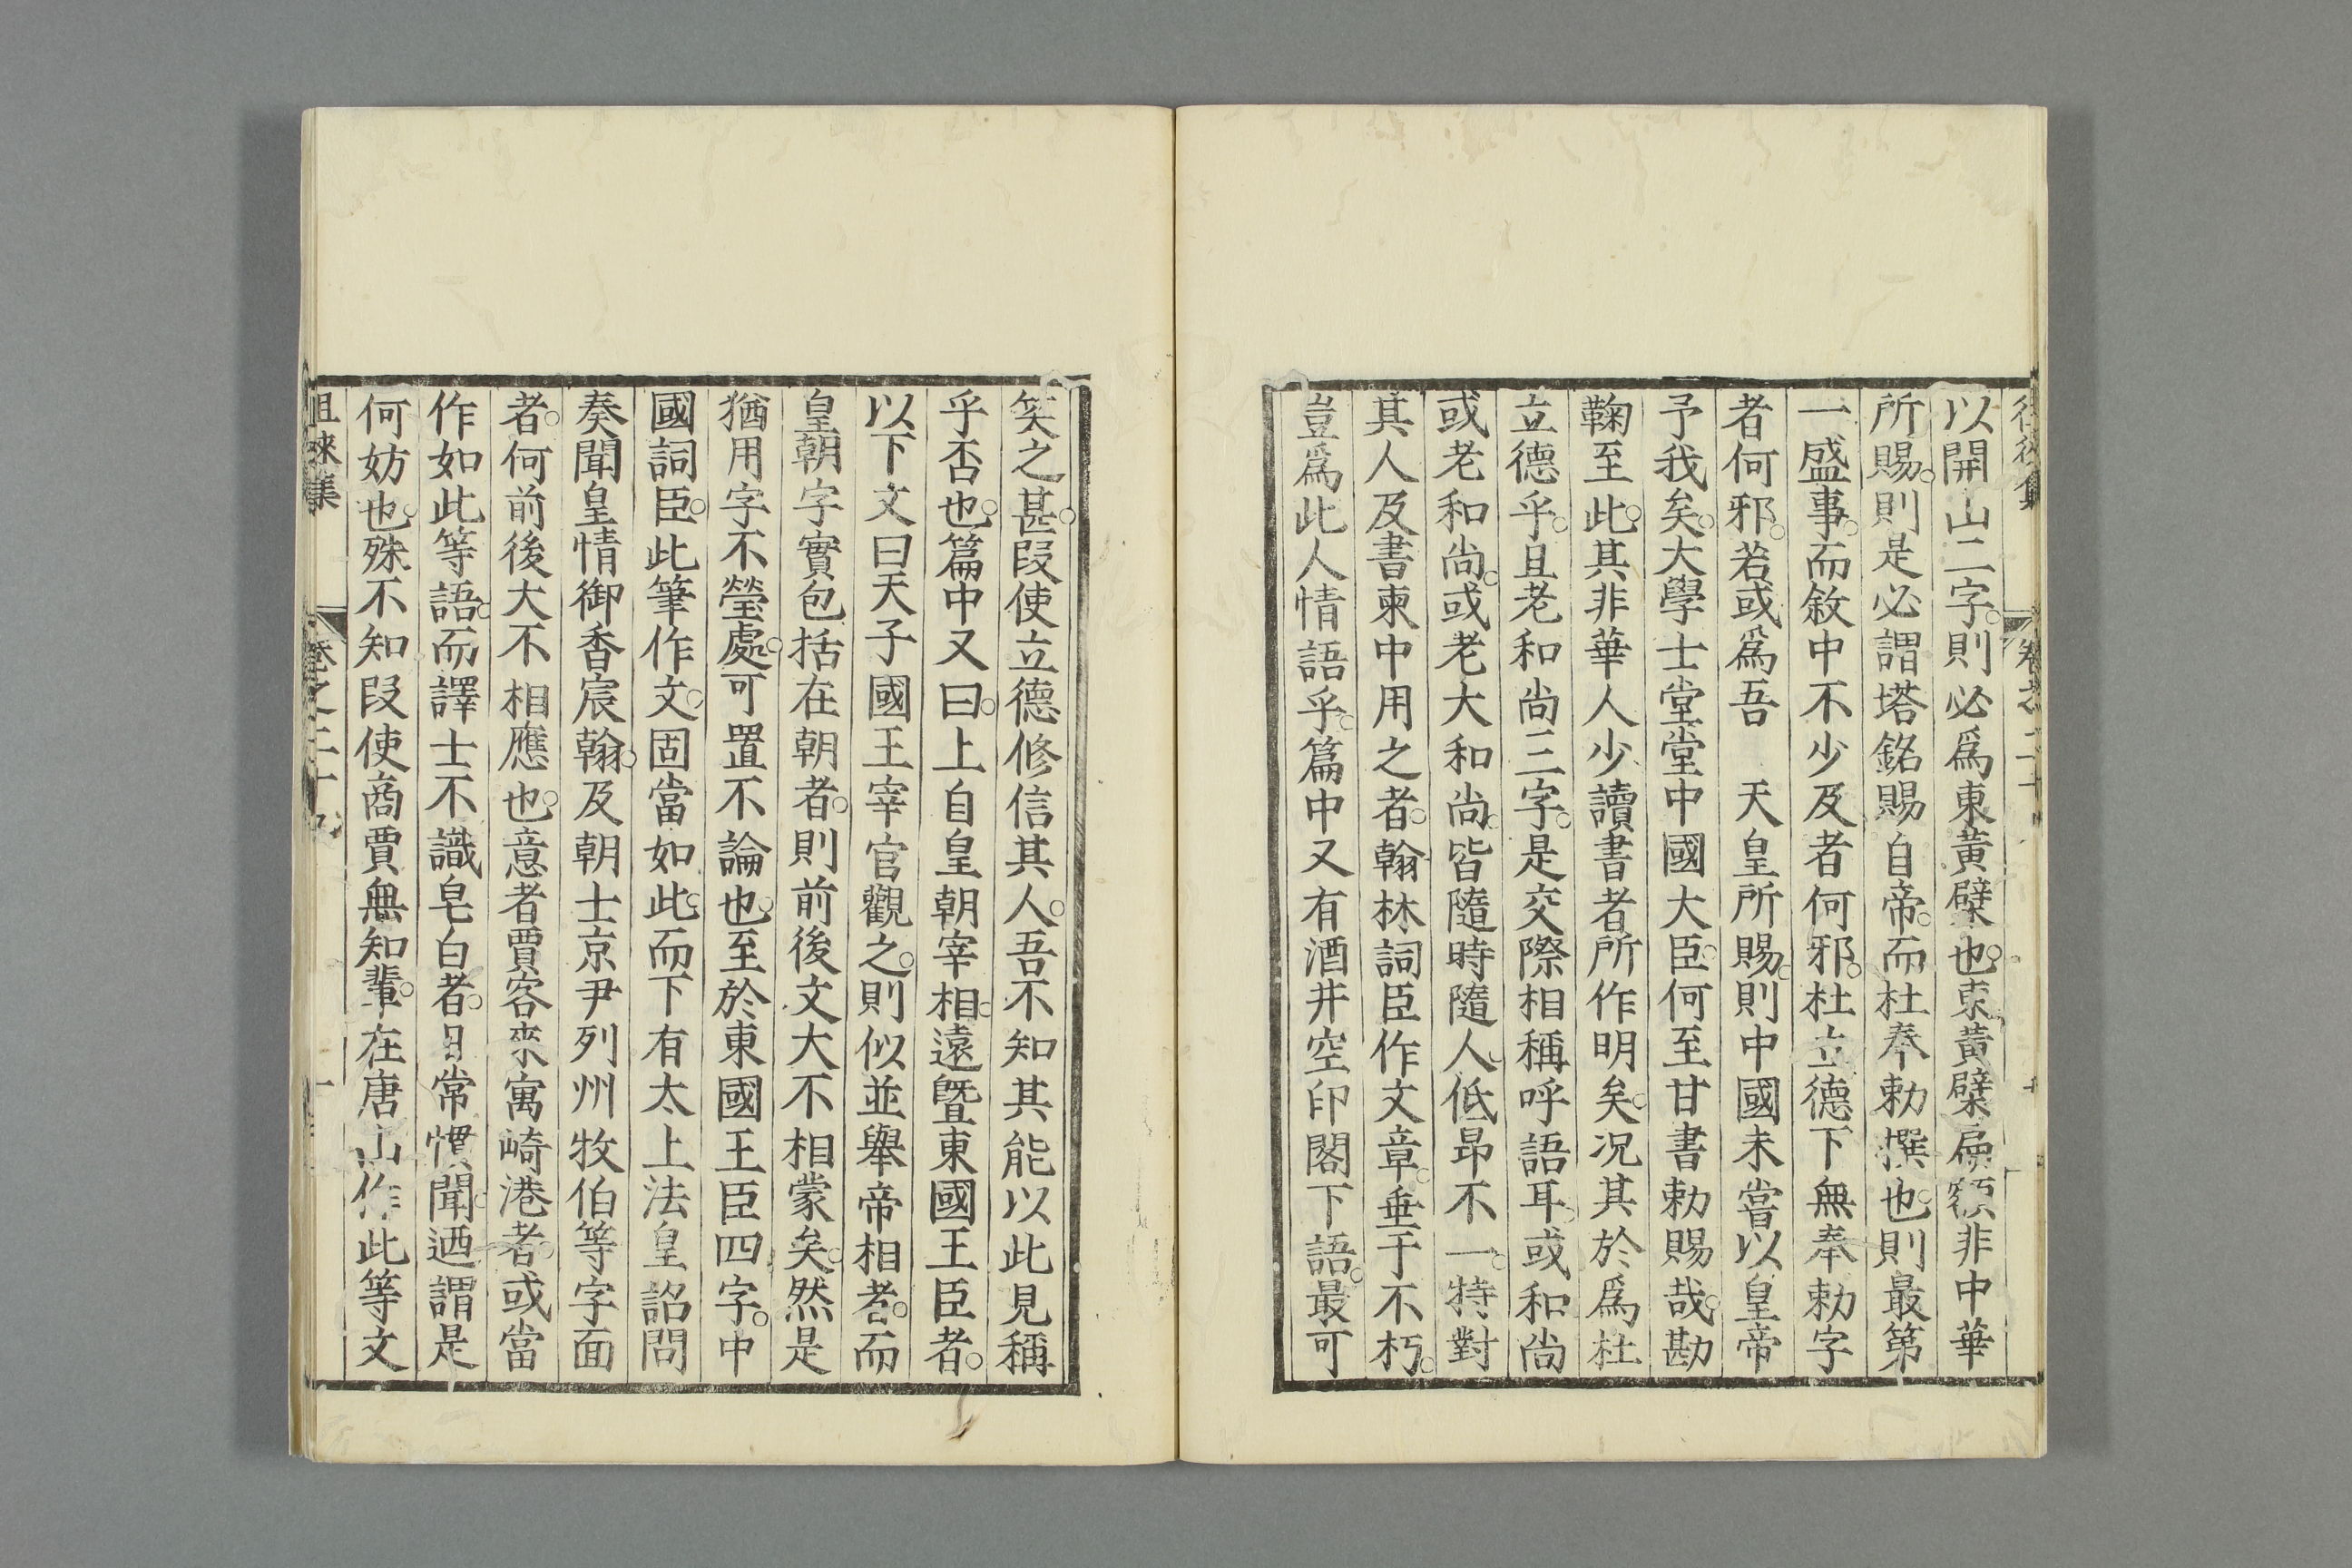 以開山二字則必爲東黃檗也東黃檗扁額非中華
所賜則是必謂塔銘賜自帝而杜奉勅撰也則最第
一盛事而敘中不少及者何邪杜立德下無奉勅字
者何邪若或爲吾　天皇所賜則中國未嘗以皇帝
予我矣大學士堂堂中國大臣何至甘書勅賜哉勘
鞠至此其非華人少讀書者所作明矣况其於爲杜
立德乎且老和尚三字是交際相稱呼語耳或和尚
或老和尚或老大和尚皆隨時隨人低昂不一特對
其人及書柬中用之者翰林詞臣作文章垂于不朽
豈爲此人情語乎篇中又有酒井空印閣下語最可
笑之甚叚使立德修信其人吾不知其能以此見稱
乎否也篇中又曰上自皇朝宰相遠曁東國王臣者
以下文曰天子國王宰官觀之則似並舉帝相者而
皇朝字實包括在朝者則前後文大不相蒙矣然是
猶用字不瑩處可置不論也至於東國王臣四字中
國詞臣此筆作文固當如此而下有太上法皇詔問
奏聞皇情御香宸翰及朝士京尹列州牧伯等字面
者何前後大不相應也意者賈客來寓崎港者或當
作如此等語而譯士不識皂白者日常慣聞迺謂是
何妨也殊不知叚使商賈無知輩在唐山作此等文
徂徠集　卷之二十九　十